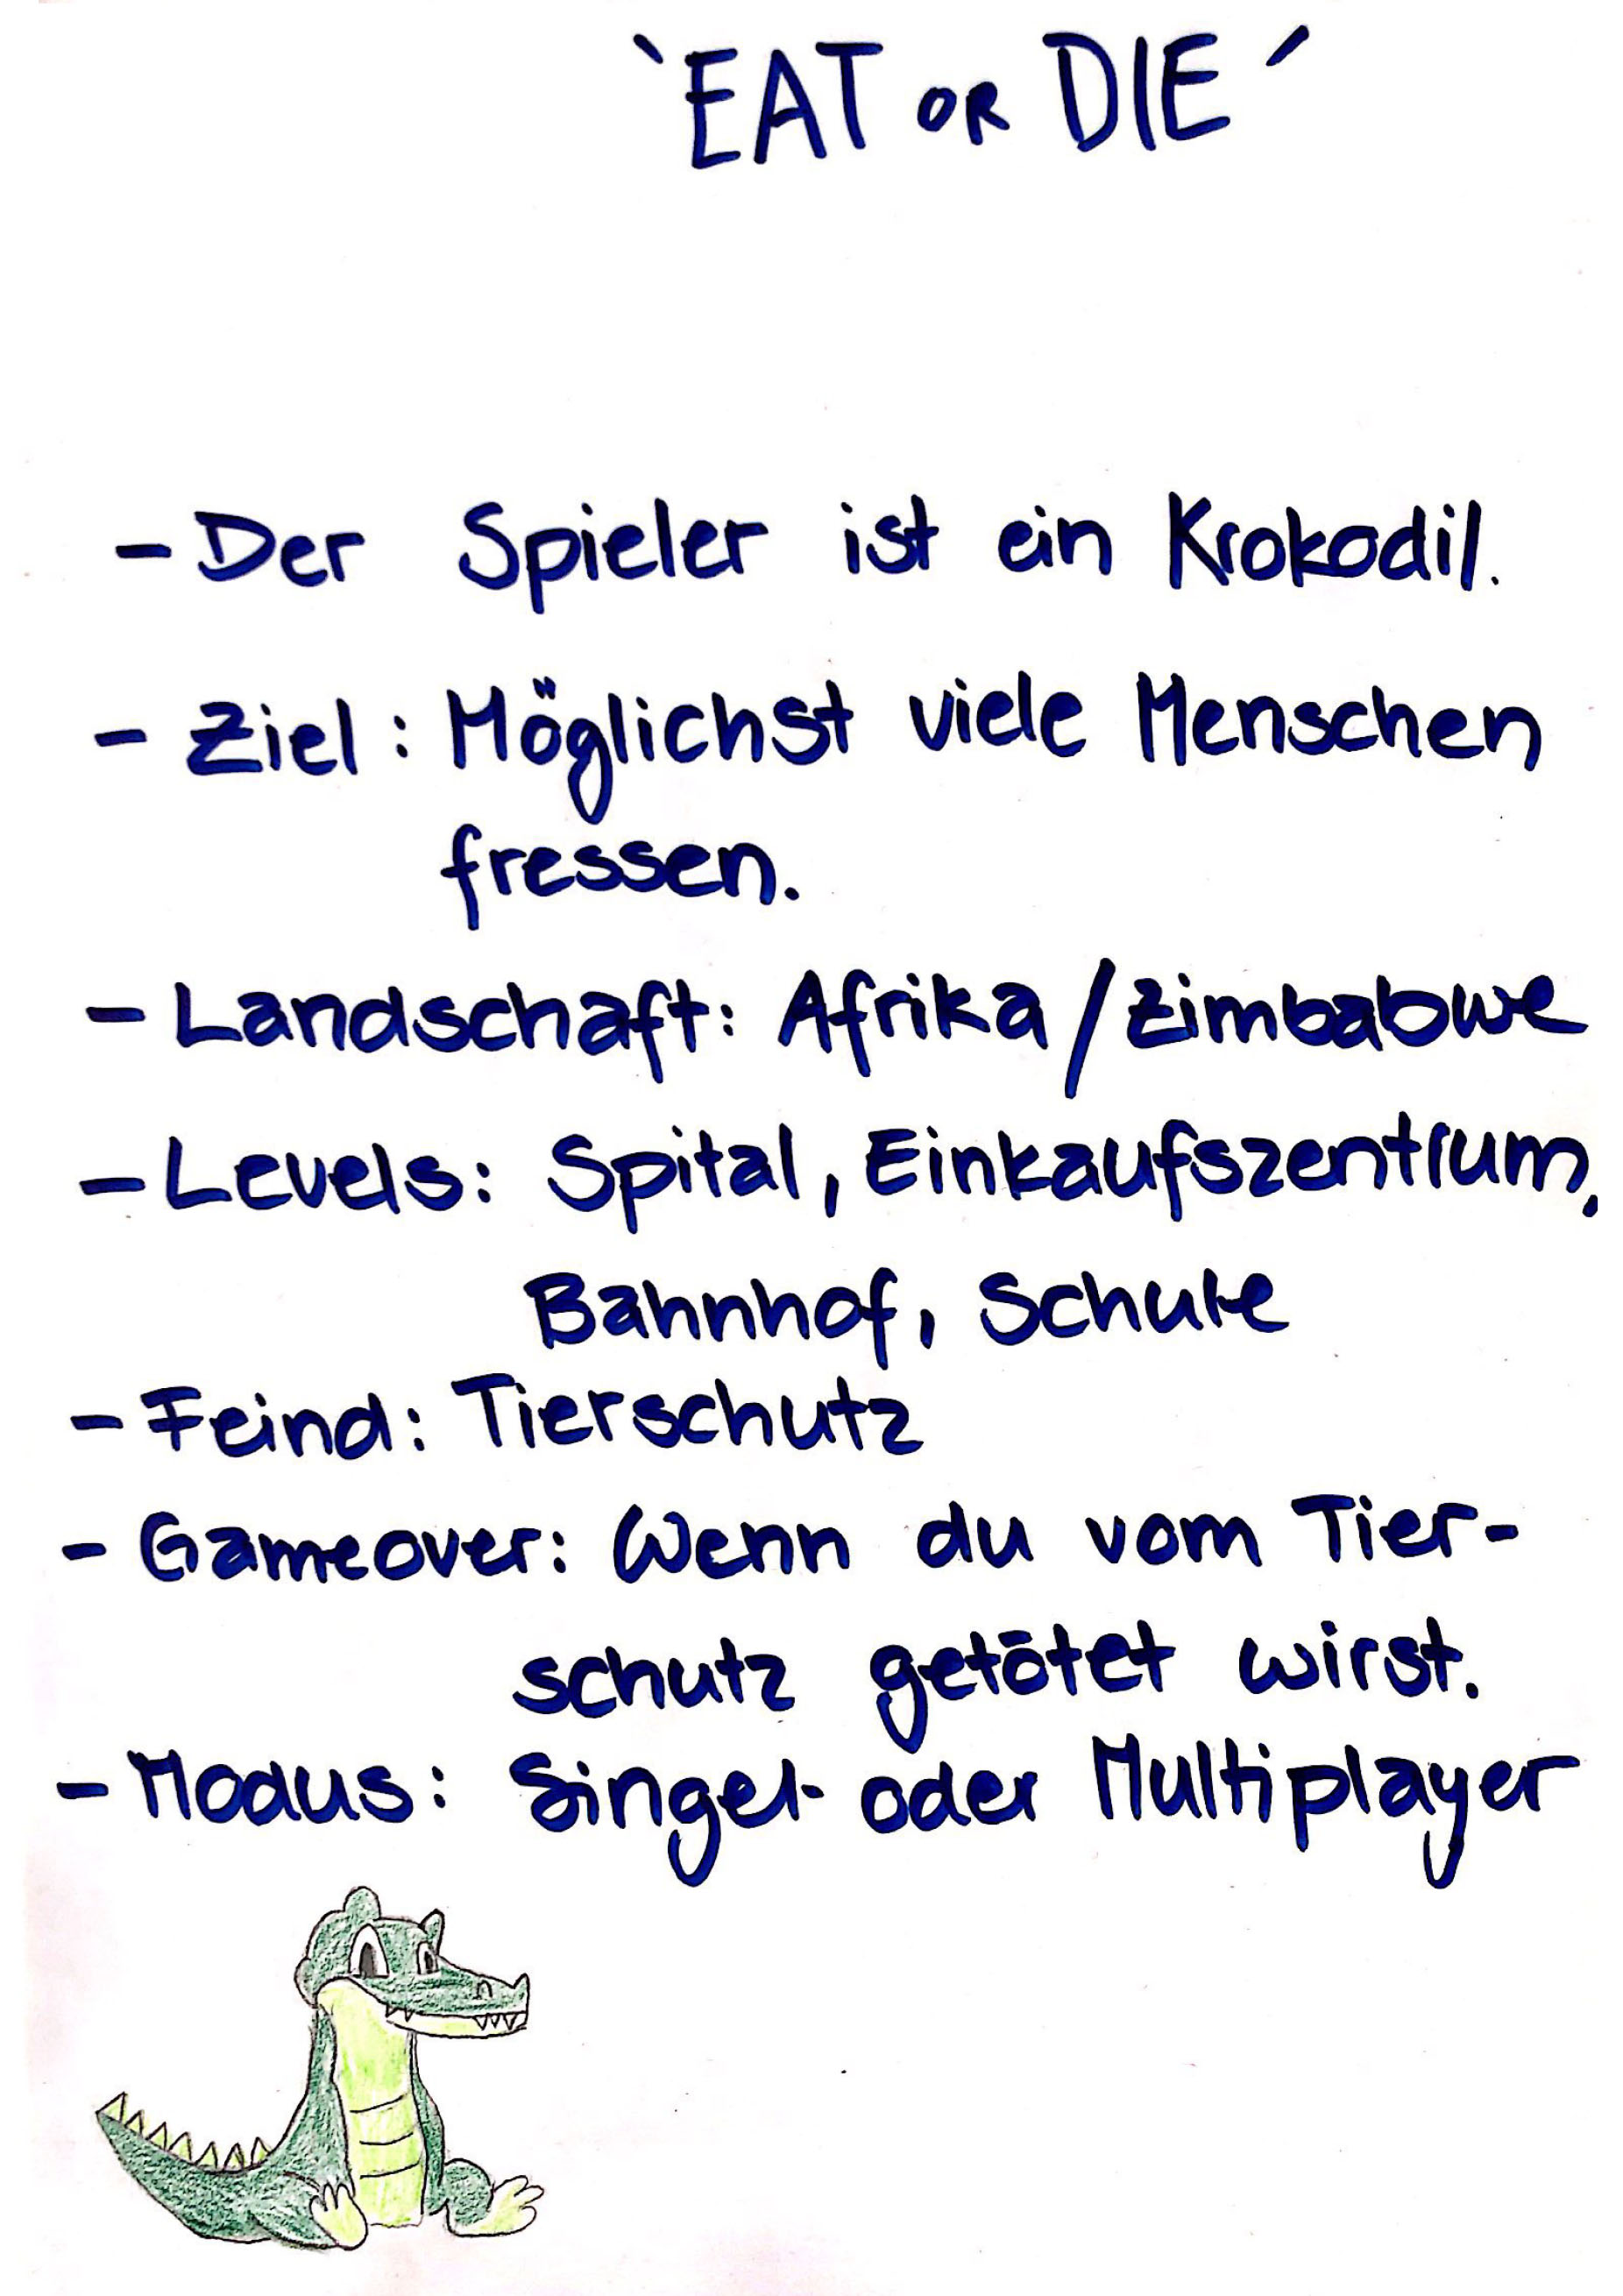 `EAT OR DIE´
- Der Spieler ist ein Krokodil.
- Ziel: Möglichst viele Menschen
fressen.
- Landschaft: Afrika/Zimbabwe
- Levels: Spital, Einkaufszentrum,
Bahnhof, Schule
- Feind: Tierschutz
- Gameover: Wenn du vom Tier-
schutz getötet wirst.
- Modus: Singel- oder Multiplayer